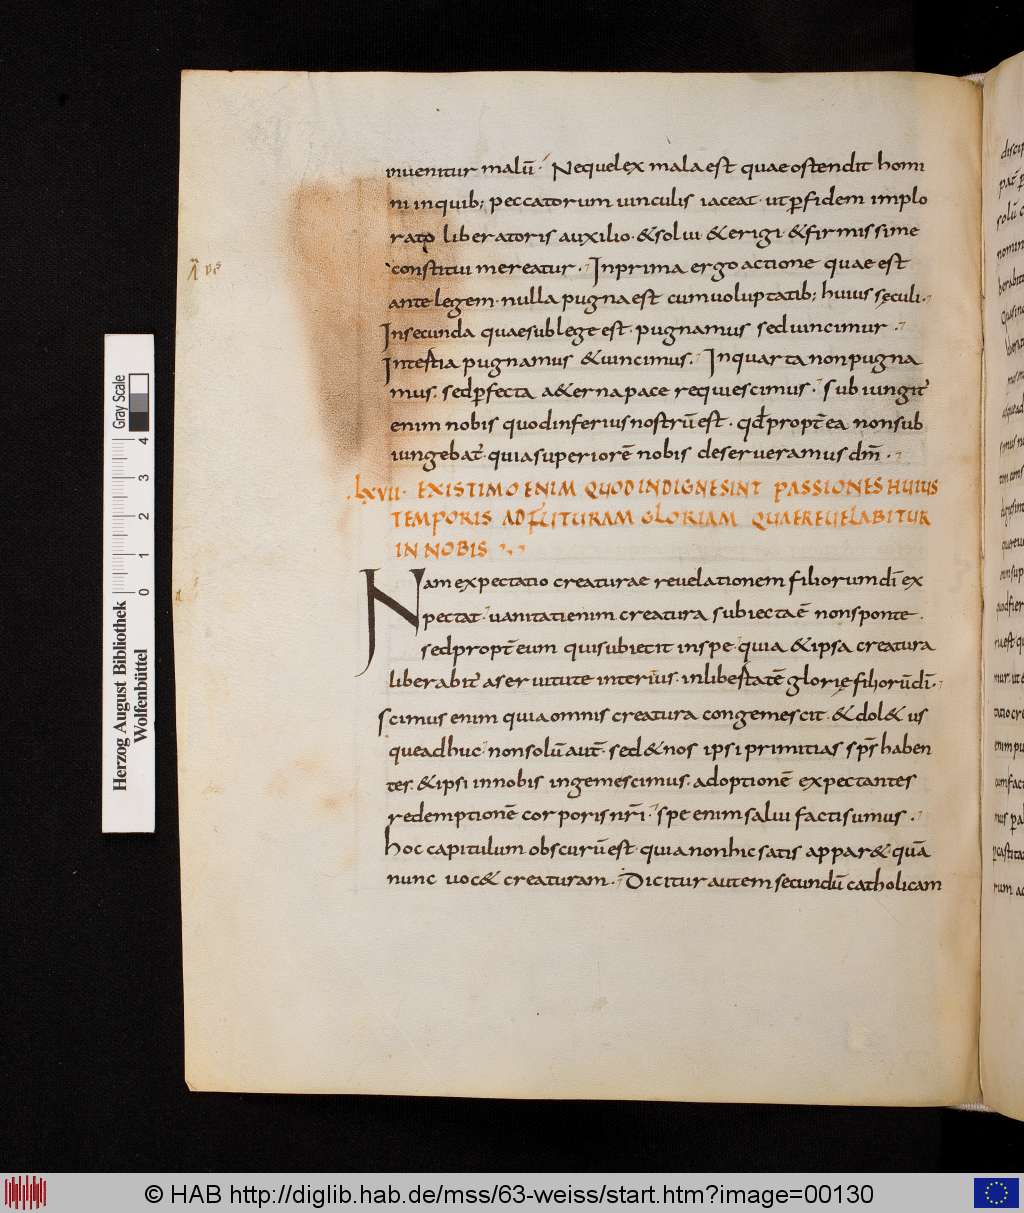 inuenitur malū. Neque lex mala est quae ostendit homi
ni in quib; peccatorum uinculis iaceat. ut p̄ fidem implo
rato liberatoris auxilio. & solui. & erigi. & firmissime
constitui mereatur. In prima ergo actione quae est
ante legem. nulla pugna est cum uoluptatib; huius sęculi.
In secunda quae sub lege est. pugnamus sed uincimur.
In tertia pugnamus & uincimus. In quarta non pugna
mus. sed p̄fecta a&erna pace requiescimus. Subiungit'
enim nobis quod inferius nostrū est. qđ propt̄ea non sub
iungebat'. quia superiorē nobis deserueramus dm̄.
lxvii. EXISTIMO ENIM QUOD INDIGNE SINT PASSIONES HUIUS
TEMPORIS AD FUTURAM GLORIAM QUAE REUELABITUR
IN NOBIS
Nam expectatio creaturae reuelationem filiorum dī ex
pectat. uanitati enim creatura subiecta ē non sponte.
sed propt̄ eum qui subiecit in spe. quia & ipsa creatura
liberabit' a seruitute interitus. in libertatē glorię filiorū dī.
Scimus enim quia omnis creatura congemescit. & dol& us
que adhuc. non solū aut̄. sed & nos ipsi primitias sp̄s haben
tes. & ipsi in nobis ingemescimus. adoptionē expectantes
redemptionē corporis nr̄i. spe enim salui facti sumus.
hoc capitulum obscurū est. quia non hic satis appar& quā
nunc uoc& creaturam. Dicitur autem secundū catholicam
Gray Scale
0 1 2 3 4
Herzog August Bibliothek
Wolfenbüttel
© HAB http://diglib.hab.de/mss/63-weiss/start.htm?image=00130